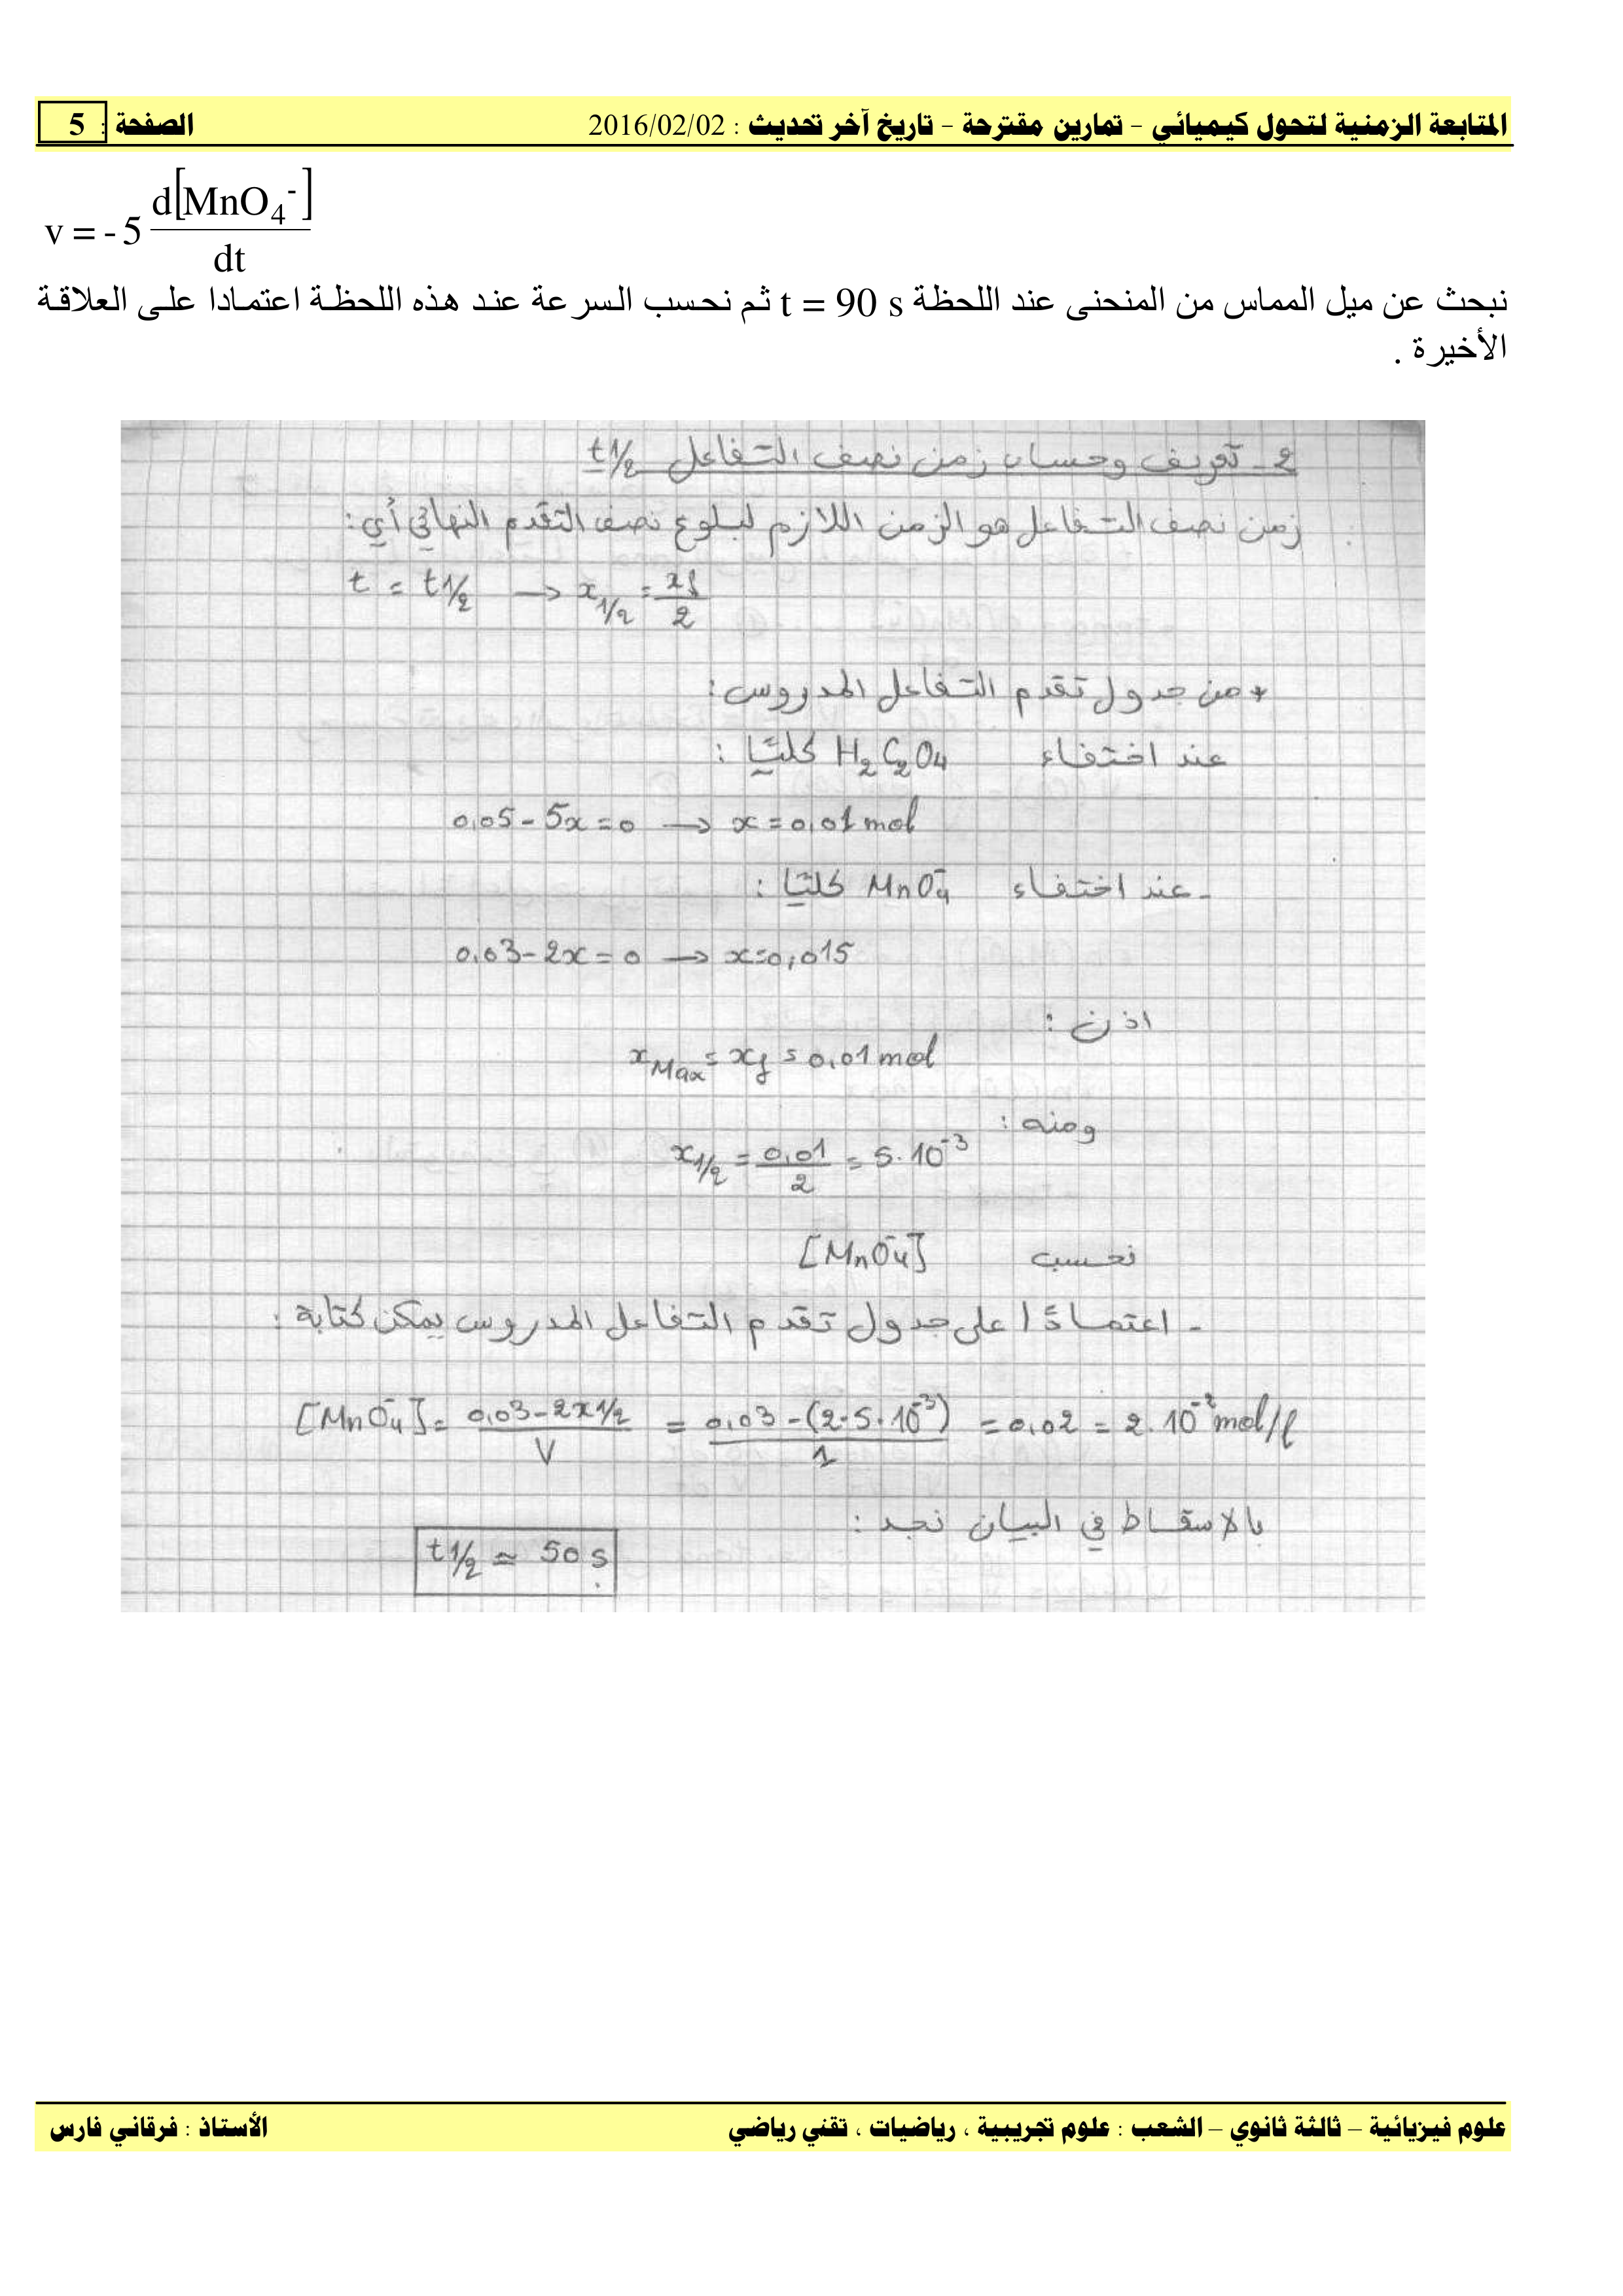 المتابعة الزمنية لتحول كيميائي – تمارين مقترحة – تاريخ آخر تحديث : 2016/02/02 الصفحة : 5
v = - 5 d[MnO4-] / dt
نبحث عن ميل المماس من المنحنى عند اللحظة t = 90 s ثم نحسب السرعة عند هذه اللحظة اعتمادا على العلاقة
الأخيرة .
2- تعريف وحساب زمن نصف التفاعل t1/2
زمن نصف التفاعل هو الزمن اللازم لبلوغ نصف التقدم النهائي أي :
t = t1/2 → x1/2 = xf/2
* من جدول تقدم التفاعل المدروس :
عند اختفاء H2C2O4 كليًا :
0,05 - 5x = 0 → x = 0,01 mol
- عند اختفاء MnO4- كليًا :
0,03 - 2x = 0 → x = 0,015
اذن :
xMax = xf = 0,01 mol
ومنه :
x1/2 = 0,01/2 = 5.10-3
نحسب [MnO4-]
- اعتمادًا على جدول تقدم التفاعل المدروس يمكن كتابة :
[MnO4-] = (0,03 - 2x1/2)/V = (0,03 - (2.5.10-3))/1 = 0,02 = 2.10-2 mol/l
بالاسقاط في البيان نجد :
t1/2 ≈ 50 s
علوم فيزيائية – ثالثة ثانوي – الشعب : علوم تجريبية ، رياضيات ، تقني رياضي الأستاذ : فرقاني فارس